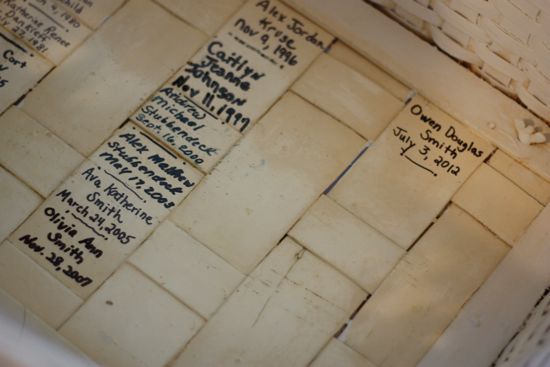 Child
4, 1970
Katherine Renee
Cort
Alex Jordan
Kruse
Nov 9, 1996
Caitlyn
Jeanne
Johnson
Nov 11, 1997
Andrew
michael
Stubbendeck
Sept. 16, 2010
Alex Matthew
Stubbendeck
may 17, 2008
Ava Katherine
Smith
March 24, 2005
Olivia Ann
Smith
Nov. 28, 2007
Owen Douglas
Smith
July 3, 2012